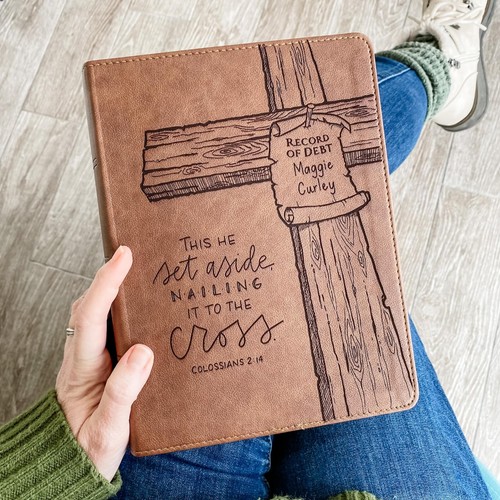 RECORD
OF DEBT
Maggie
Curley
THIS HE
set aside,
NAILING
IT TO THE
Cross.
COLOSSIANS 2:14